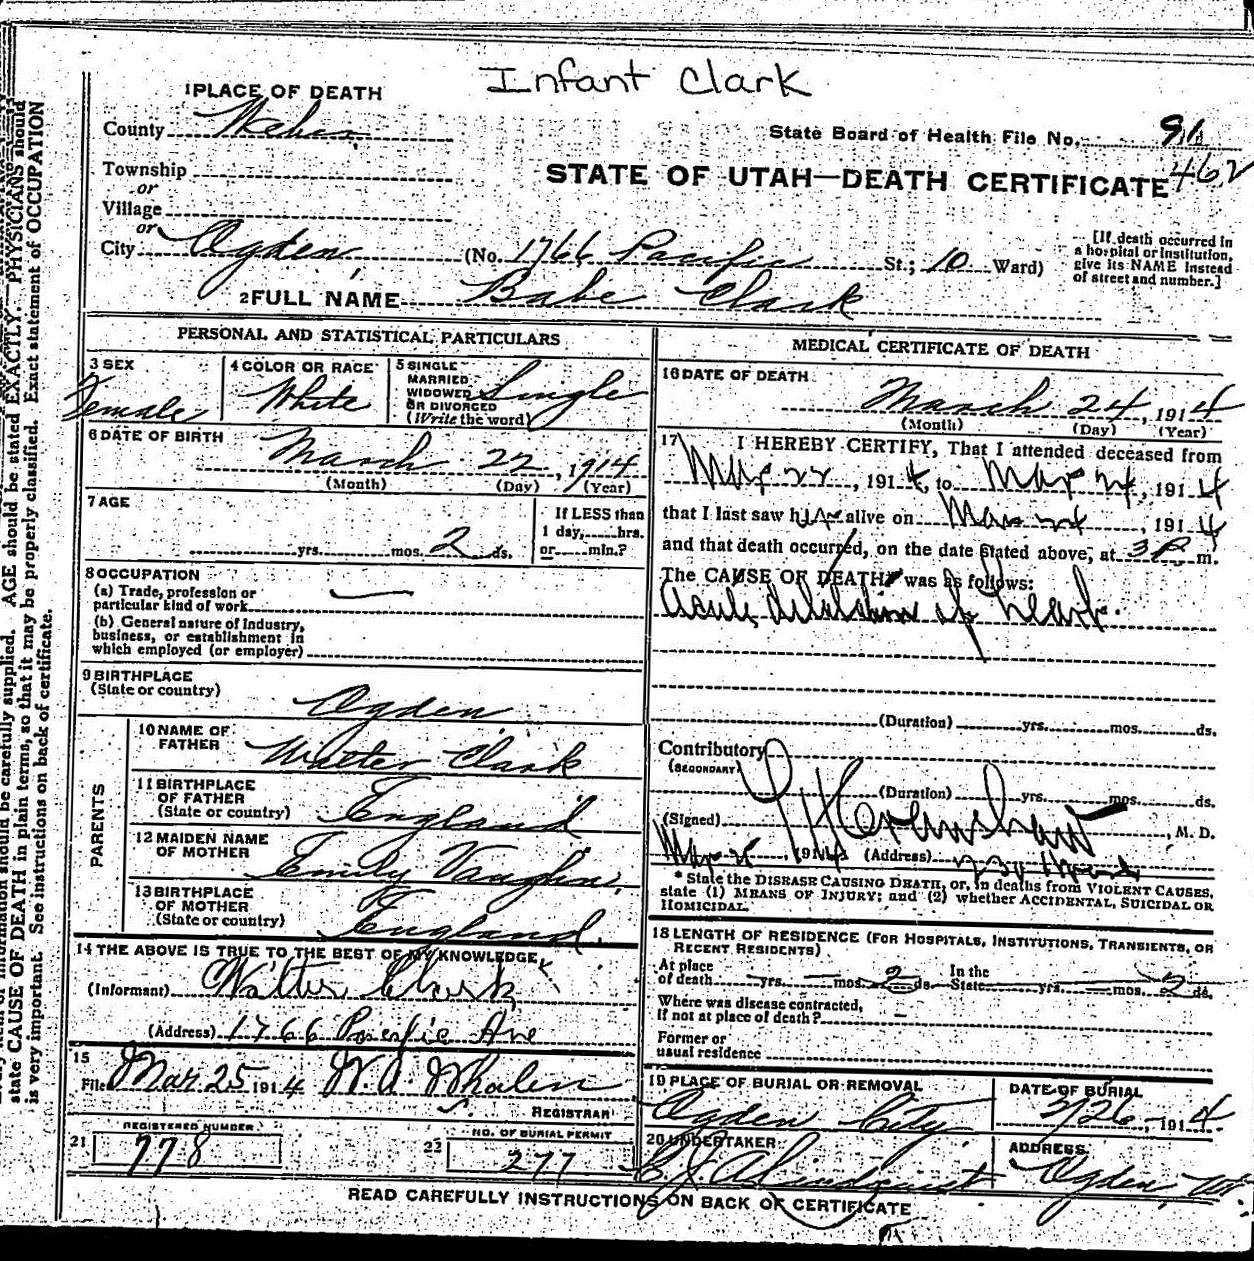 Infant Clark
1 PLACE OF DEATH
County Weber
State Board of Health File No. 91
462
Township
or
Village
or
City Ogden
STATE OF UTAH—DEATH CERTIFICATE
(No. 1766 Pacific St.; 10 Ward)
[If death occurred in
a hospital or institution,
give its NAME instead
of street and number.]
2 FULL NAME Babe Clark
PERSONAL AND STATISTICAL PARTICULARS
3 SEX
Female
4 COLOR OR RACE
White
5 SINGLE
MARRIED
WIDOWED
OR DIVORCED
(Write the word)
Single
6 DATE OF BIRTH
March 22, 1914
(Month) (Day) (Year)
7 AGE
yrs. mos. 2 ds.
If LESS than
1 day, hrs.
or min.?
8 OCCUPATION
(a) Trade, profession or
particular kind of work
(b) General nature of Industry,
business, or establishment in
which employed (or employer)
9 BIRTHPLACE
(State or country)
Ogden
PARENTS
10 NAME OF
FATHER
Walter Clark
11 BIRTHPLACE
OF FATHER
(State or country)
England
12 MAIDEN NAME
OF MOTHER
Emily Vaughn
13 BIRTHPLACE
OF MOTHER
(State or country)
England
14 THE ABOVE IS TRUE TO THE BEST OF MY KNOWLEDGE
(Informant) Walter Clark
(Address) 1766 Pacific Ave
15
Filed Mar. 25 1914 W. A. Whalen
REGISTRAR
21 REGISTERED NUMBER
778
22 NO. OF BURIAL PERMIT
277
MEDICAL CERTIFICATE OF DEATH
16 DATE OF DEATH
March 24, 1914
(Month) (Day) (Year)
17 I HEREBY CERTIFY, That I attended deceased from
Mar 22, 1914, to Mar 24, 1914
that I last saw her alive on Mar 24, 1914
and that death occurred, on the date stated above, at 3 P m.
The CAUSE OF DEATH* was as follows:
Acute dilatation of heart.
(Duration) yrs. mos. ds.
Contributory
(SECONDARY)
(Duration) yrs. mos. ds.
(Signed) , M. D.
Mar 25, 1914 (Address)
* State the DISEASE CAUSING DEATH, or, in deaths from VIOLENT CAUSES,
state (1) MEANS OF INJURY; and (2) whether ACCIDENTAL, SUICIDAL OR
HOMICIDAL.
18 LENGTH OF RESIDENCE (FOR HOSPITALS, INSTITUTIONS, TRANSIENTS, OR
RECENT RESIDENTS)
At place
of death yrs. mos. 2 ds.
In the
State yrs. mos. 2 ds.
Where was disease contracted,
If not at place of death?
Former or
usual residence
19 PLACE OF BURIAL OR REMOVAL
Ogden City
DATE OF BURIAL
3/26, 1914
20 UNDERTAKER
ADDRESS
Ogden, Ut.
READ CAREFULLY INSTRUCTIONS ON BACK OF CERTIFICATE
information should be carefully supplied. AGE should be stated EXACTLY. PHYSICIANS should
state CAUSE OF DEATH in plain terms, so that it may be properly classified. Exact statement of OCCUPATION
is very important. See instructions on back of certificate.